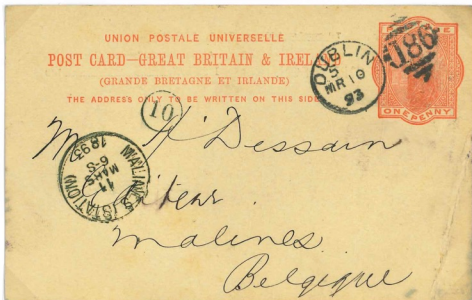 UNION POSTALE UNIVERSELLE
POST CARD—GREAT BRITAIN & IRELAND
(GRANDE BRETAGNE ET IRLANDE)
THE ADDRESS ONLY TO BE WRITTEN ON THIS SIDE
DUBLIN
5
MR 10
93
186
ONE PENNY
10
M H Dessain
MALINES (STATION)
11
MARS
6-S
1893
Malines
Belgique